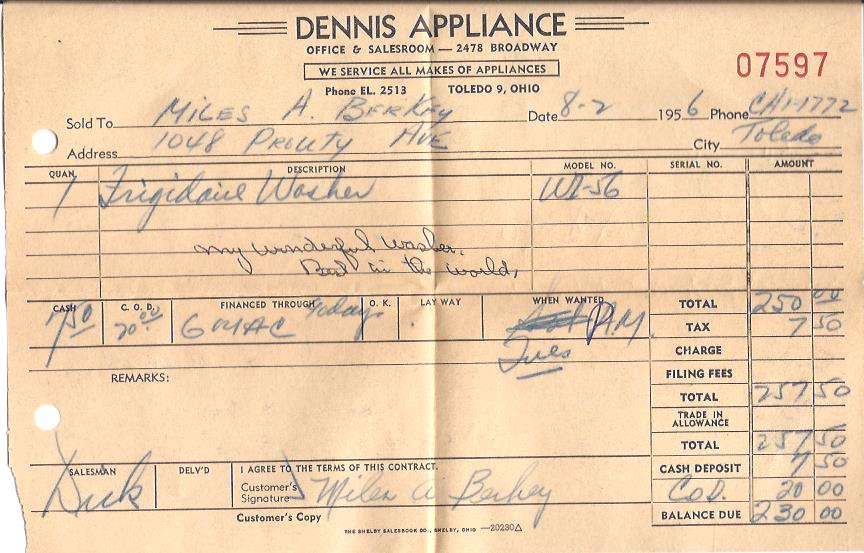 DENNIS APPLIANCE
OFFICE & SALESROOM — 2478 BROADWAY
WE SERVICE ALL MAKES OF APPLIANCES
07597
Phone EL. 2513 TOLEDO 9, OHIO
Sold To Miles A. Berkey Date 8-2 1956 Phone CH1-1772
Address 1048 Prouty Ave City Toledo
QUAN. DESCRIPTION MODEL NO. SERIAL NO. AMOUNT
1 Frigidaire Washer WI-56
My wonderful washer.
Best in the world,
CASH C. O. D. FINANCED THROUGH O. K. LAY WAY WHEN WANTED TOTAL 250 00
7 50 20 00 GMAC P.M. TAX 7 50
Tues CHARGE
REMARKS: FILING FEES
TOTAL 257 50
TRADE IN ALLOWANCE
TOTAL 257 50
SALESMAN DELV'D I AGREE TO THE TERMS OF THIS CONTRACT. CASH DEPOSIT 7 50
Dick Customer's Signature Miles A Berkey C.O.D. 20 00
Customer's Copy BALANCE DUE 230 00
THE SHELBY SALESBOOK CO., SHELBY, OHIO —20230△